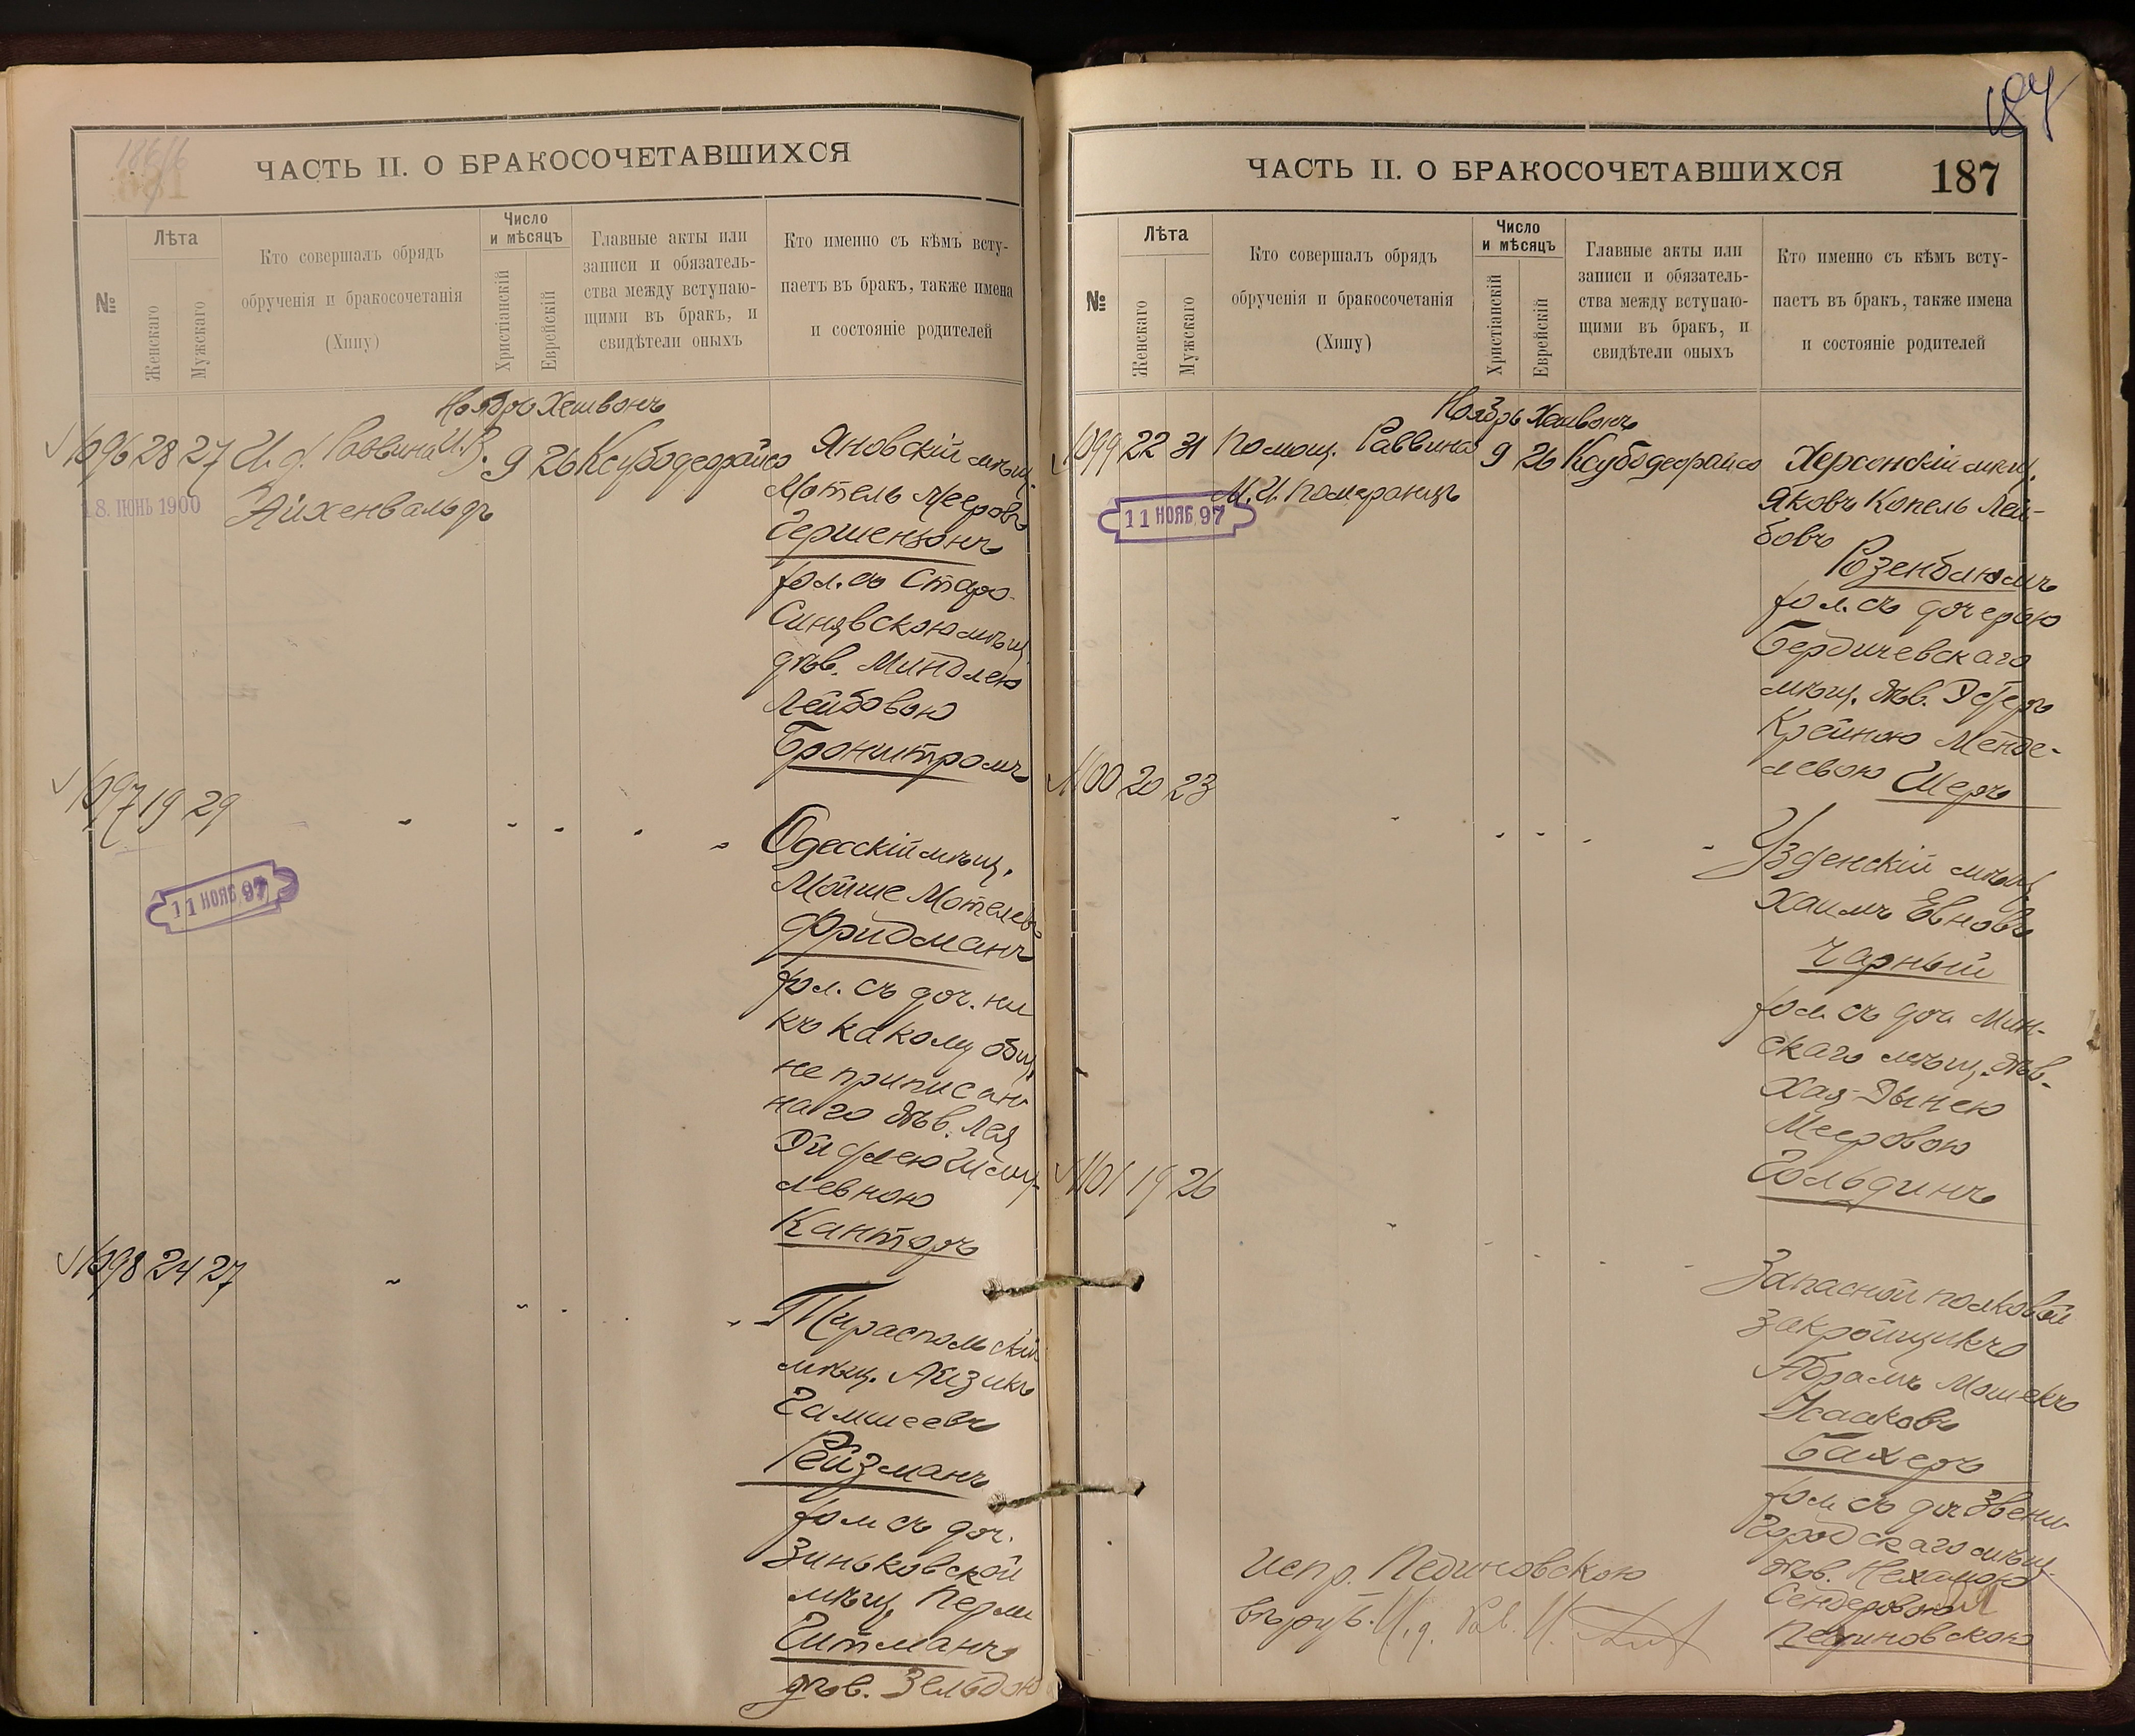 ЧАСТЬ II. О БРАКОСОЧЕТАВШИХСЯ
№
Лѣта
Женскаго
Мужскаго
Кто совершалъ обрядъ
обрученія и бракосочетанія
(Хипу)
Число
и мѣсяцъ
Христіанскій
Еврейскій
Главные акты или
записи и обязатель-
ства между вступаю-
щими въ бракъ, и
свидѣтели оныхъ
Кто именно съ кѣмъ всту-
паетъ въ бракъ, также имена
и состояніе родителей
Ноябрь Хешвонъ
1096 28 27 И. д. Раввина И. В. 9 26 Ксубодеорайсо Яновскій мѣщ.
18. ІЮНЬ 1900
Эйхенвальдъ
Мотель Мееровъ
Гершензонъ
хол. съ Старо-
Синявскою мѣщ.
дѣв. Миндлею
Лейбовою
Бронштромъ
1097 19 29
11 НОЯБ. 97
Одесскій мѣщ.
Мойше Мотелевъ
Фридманъ
хол. съ доч. ни
къ какому общ.
не приписан
наго дѣв. Лея
левною
Канторъ
1098 24 27
Тираспольскій
мѣщ. Айзикъ
Рейзманъ
хол съ доч.
Зиньковской
мѣщ. Перли
Гитманъ
дѣв. Зельдою
187
ЧАСТЬ II. О БРАКОСОЧЕТАВШИХСЯ
187
№
Лѣта
Женскаго
Мужскаго
Кто совершалъ обрядъ
обрученія и бракосочетанія
(Хипу)
Число
и мѣсяцъ
Христіанскій
Еврейскій
Главные акты или
записи и обязатель-
ства между вступаю-
щими въ бракъ, и
свидѣтели оныхъ
Кто именно съ кѣмъ всту-
паетъ въ бракъ, также имена
и состояніе родителей
Ноябрь Хешвонъ
1099 22 31 Помощ. Раввина 9 26 Ксубодеорайсо Херсонскій мѣщ.
М. И. Померанцъ
11 НОЯБ. 97
Яковъ Копель Лей-
бовъ
Розенблюмъ
хол. съ дочерью
Бердичевскаго
мѣщ. дѣв. Эстеръ
Крейною Менде-
левою Шеръ
1100 20 23
Узденскій мѣщ.
Хаимъ Евновъ
Чарный
хол съ доч Мин-
скаго мѣщ. дѣв.
Хая-Дынею
Мееровою
Гольдинъ
1101 19 26
Запасной полковой
закройщикъ
Абрамъ Мошекъ
Исааковъ
Бахеръ
хол съ доч Звени-
городскаго мѣщ.
дѣв. Нехамою
Сендеровою
Пединовскою
Испр. Пединовскою
вѣрить. И. д. Рав. И.